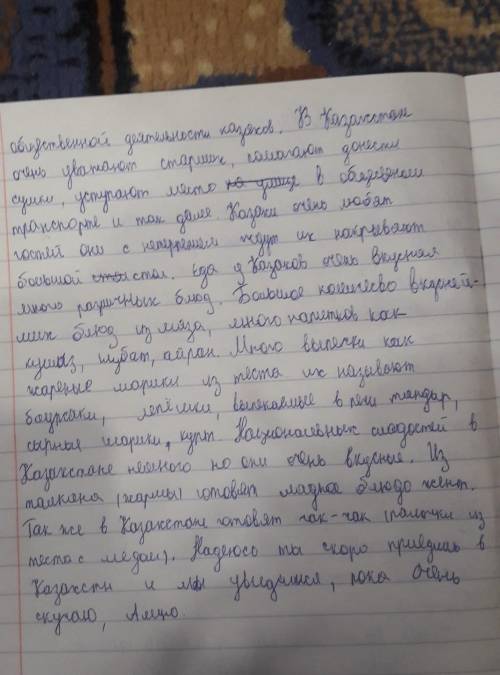 общественной деятельности казахов. В Казахстан
очень уважают старших, помогают донести
сумки, уступают место на улице в общественном
транспорте и так далее. Казахи очень любят
гостей они с нетерпением ждут их накрывают
большой стол. Еда у Казахов очень вкусная
много различных блюд. Большое количество вкусней-
ших блюд из мяса, много напитков как
кумыз, шубат, айран. Много выпечки как
жареные шарики из теста их называют
баурсаки, лепёшки, выпекаемые в печи тандыр,
сырные шарики, курт. Национальных сладостей в
Казахстане немного но они очень вкусные. Из
талкана (жармы) готовят сладкое блюдо жент.
Так же в Казахстане готовят чак-чак (палочки из
теста с медом). Надеюсь ты скоро приедишь в
Казахстн и мы увидимся, пока очень
скучаю,